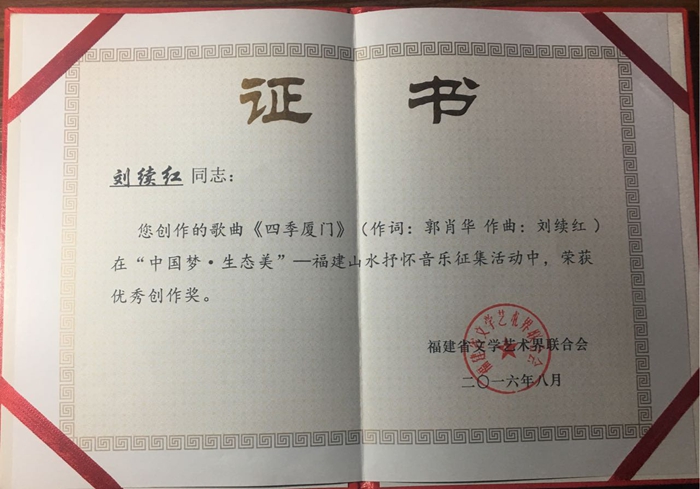 证 书
刘续红 同志：
您创作的歌曲《四季厦门》（作词：郭肖华 作曲：刘续红）
在“中国梦·生态美”—福建山水抒怀音乐征集活动中，荣获
优秀创作奖。
福建省文学艺术界联合会
福建省文学艺术界联合会
二〇一六年八月